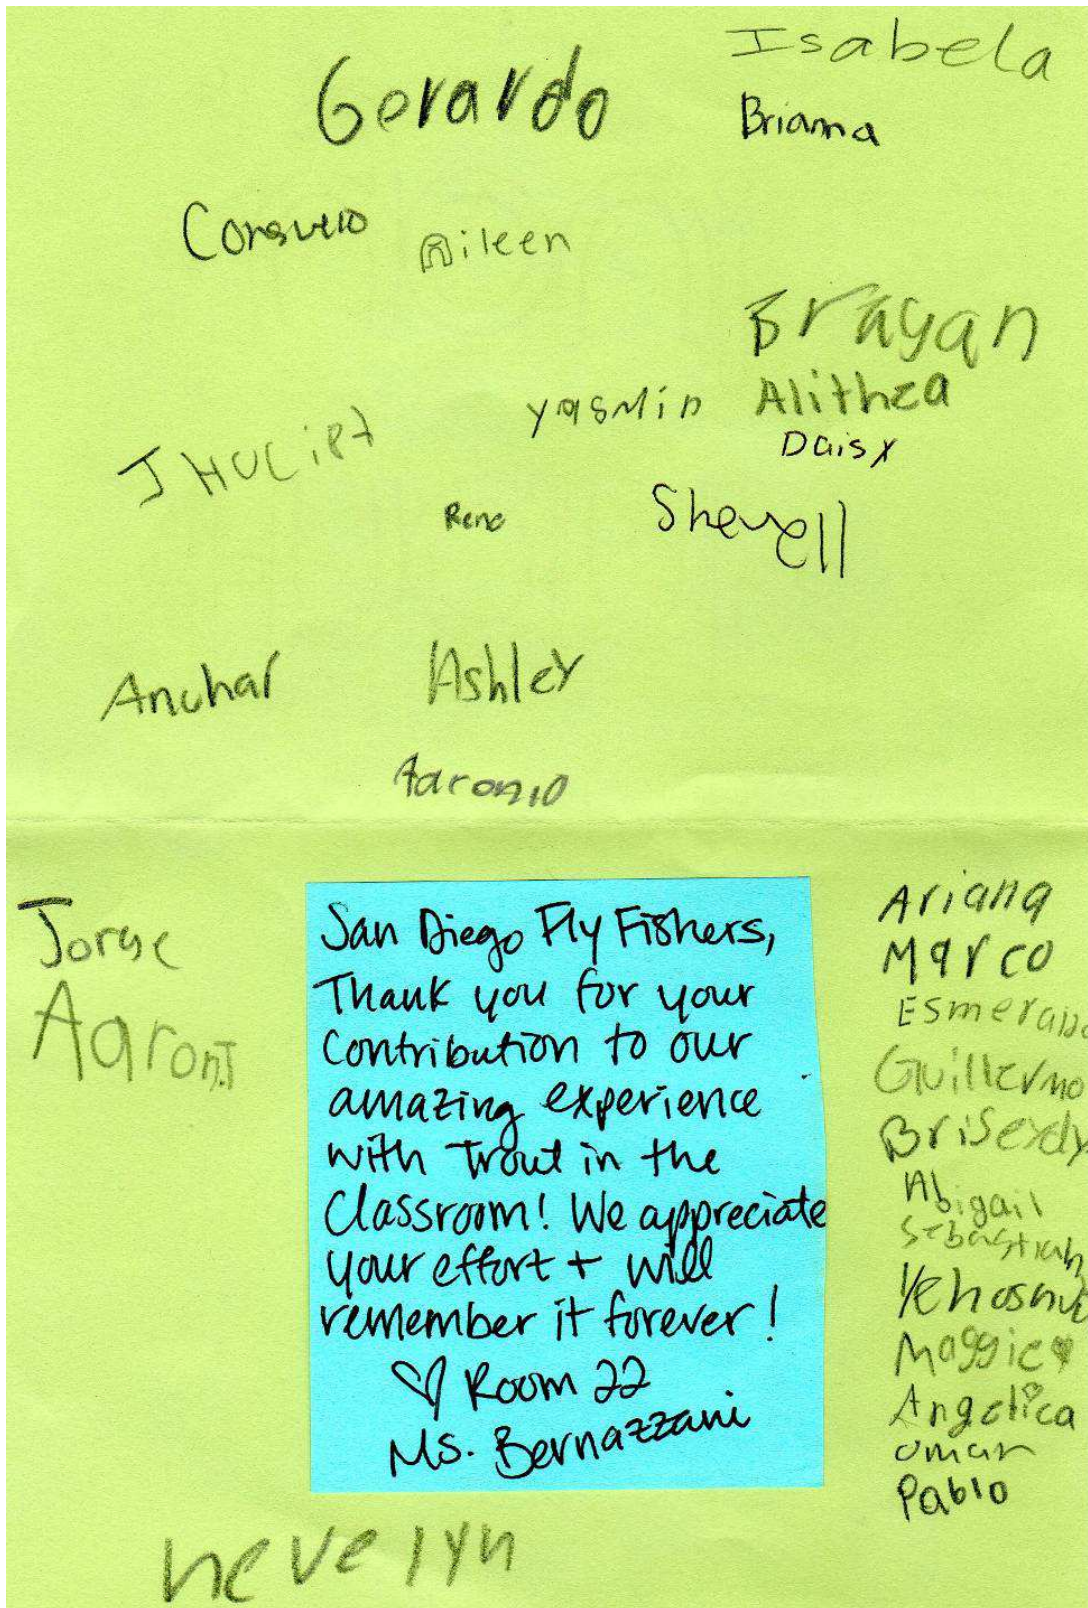 Isabela
Gerardo
Brianna
Consuelo
Aileen
Brayan
Yasmin
Alithza
Daisy
Rene
Sherell
Anuhar
Ashley
Jorge
Aaron.J
San Diego Fly Fishers,
Thank you for your
Contribution to our
amazing experience
with Trout in the
Classroom! We appreciate
your effort + will
remember it forever!
♡ Room 22
Ms. Bernazzani
Ariana
Marco
Guillermo
Abigail
Sebastian
Maggie
Angelica
Omar
Pablo
nevelyn